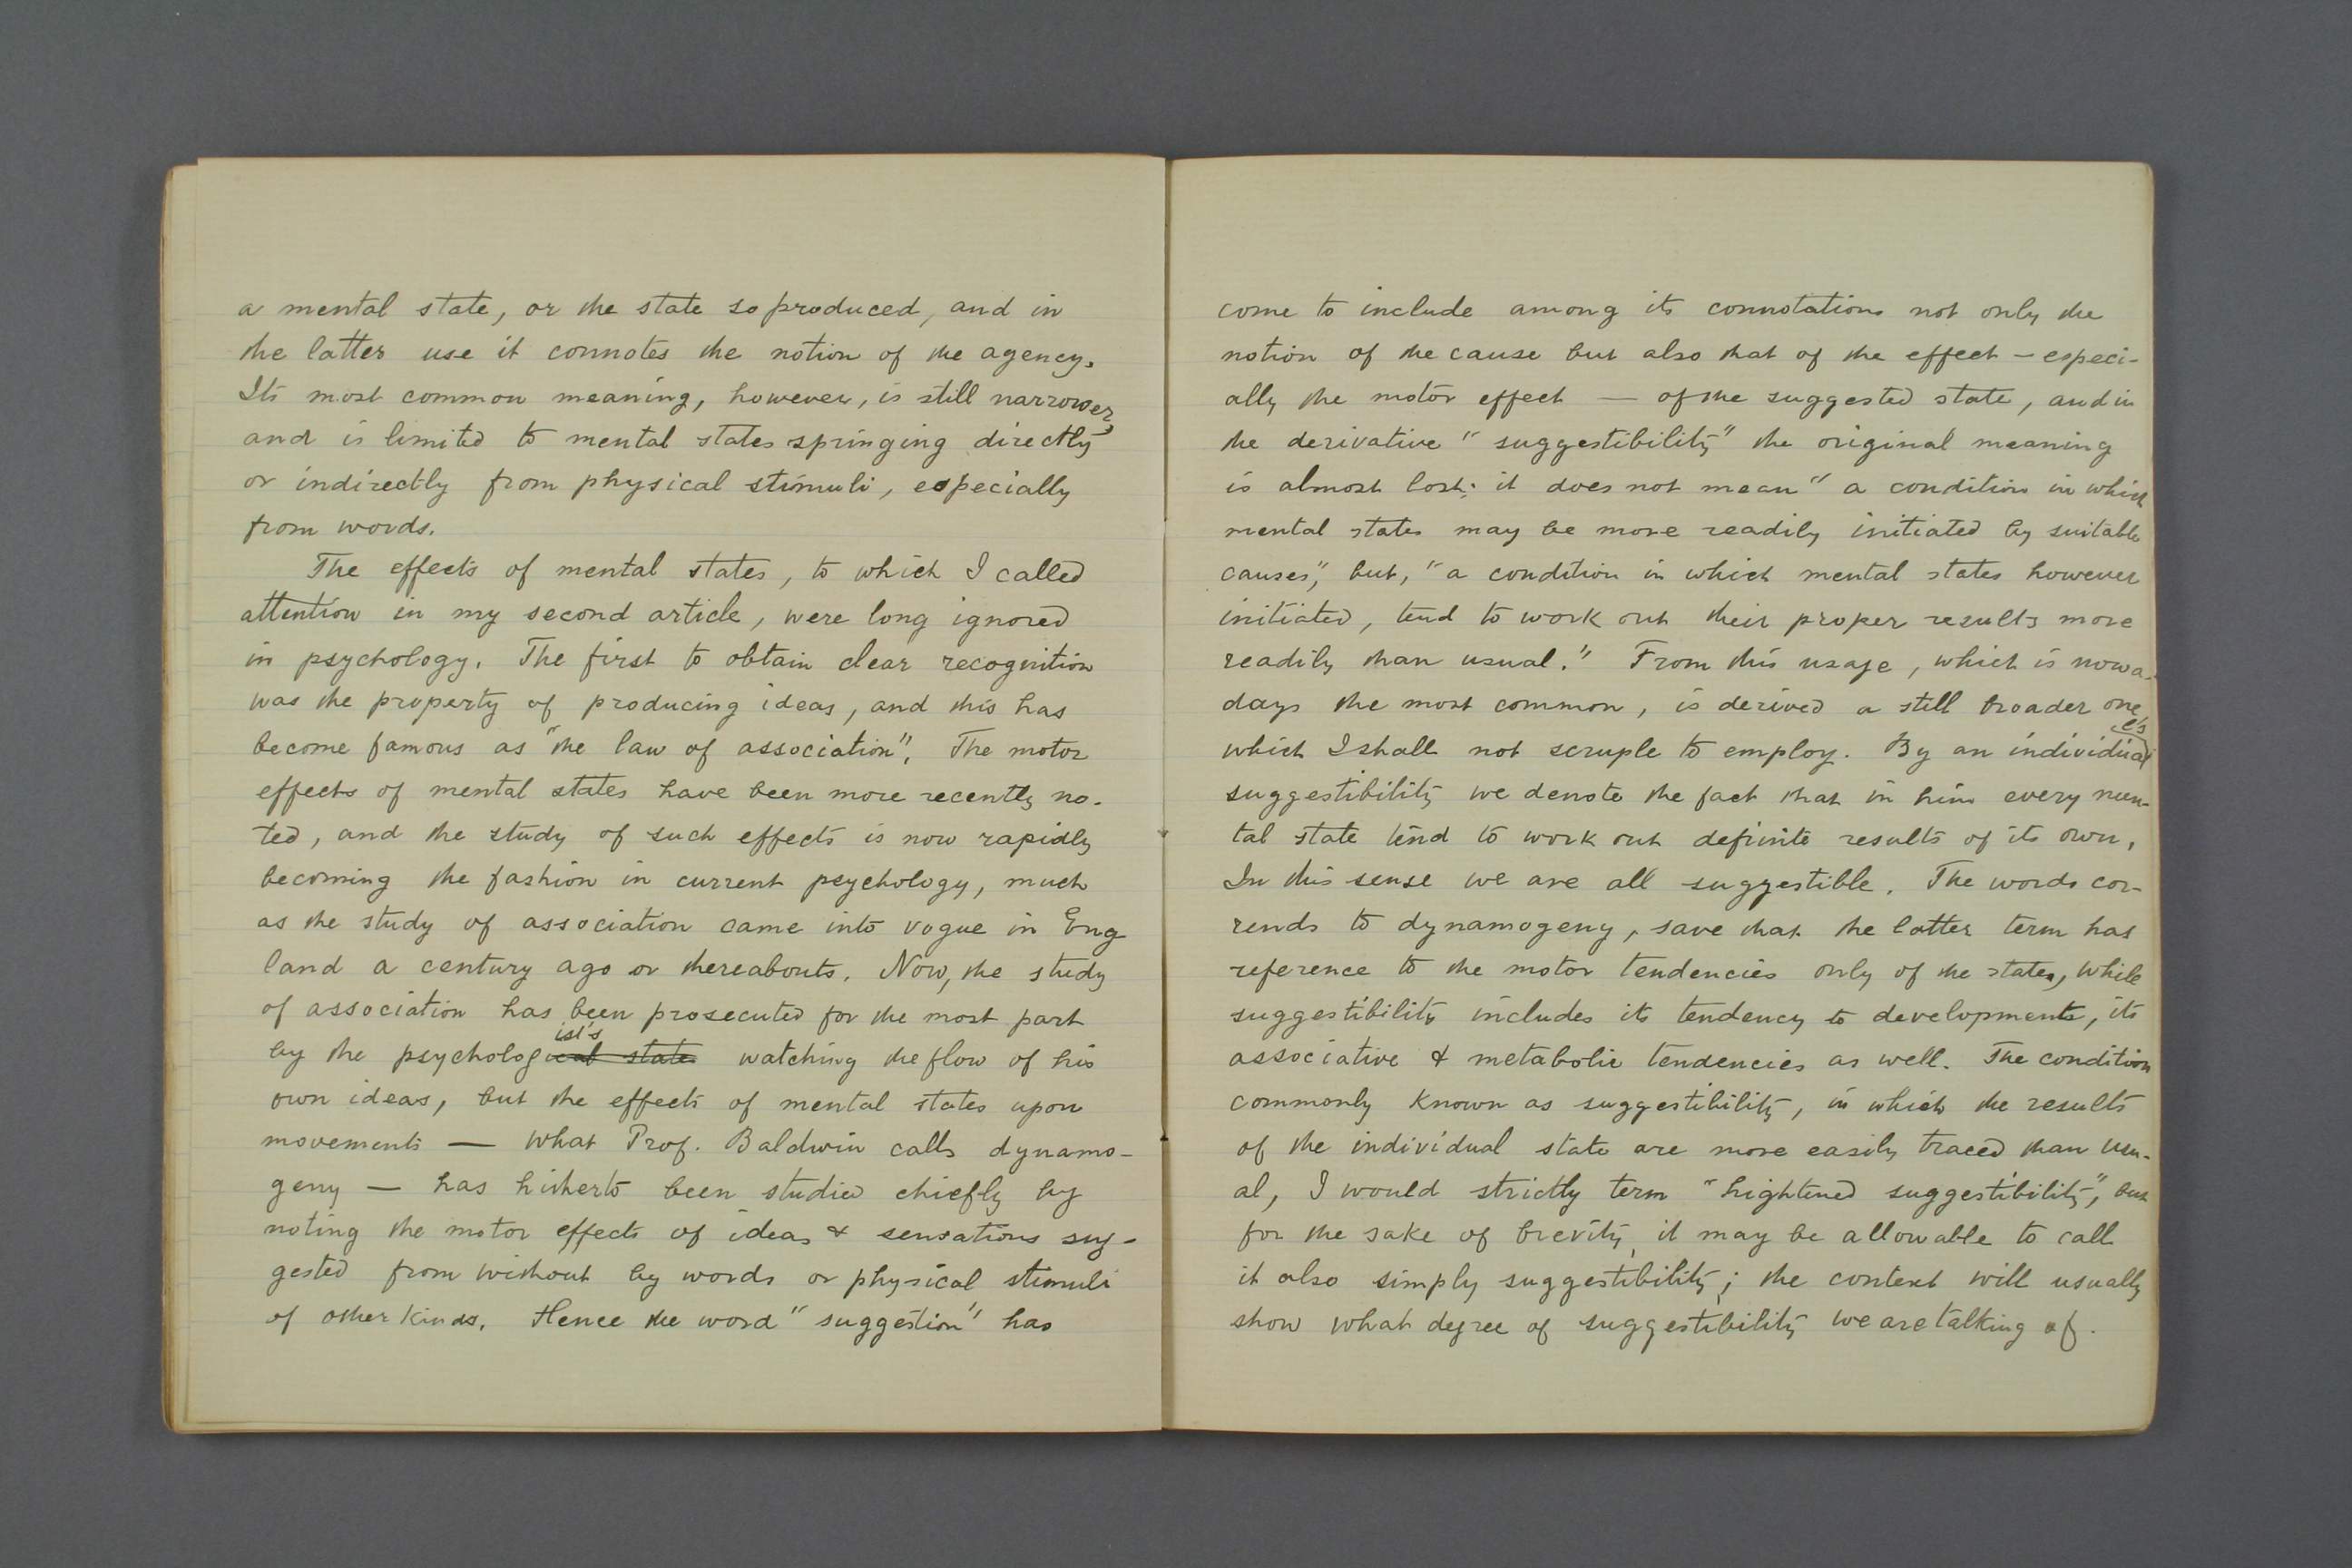 a mental state, or the state so produced, and in
the latter use it connotes the notion of the agency.
Its most common meaning, however, is still narrower,
and is limited to mental states springing directly
or indirectly from physical stimuli, especially
from words.
The effects of mental states, to which I called
attention in my second article, were long ignored
in psychology. The first to obtain clear recognition
was the property of producing ideas, and this has
become famous as "the law of association". The motor
effects of mental states have been more recently no-
ted, and the study of such effects is now rapidly
becoming the fashion in current psychology, much
as the study of association came into vogue in Eng
land a century ago or thereabouts. Now, the study
of association has been prosecuted for the most part
ist's
by the psychological state watching the flow of his
own ideas, but the effects of mental states upon
movements — what Prof. Baldwin calls dynamo-
geny — has hitherto been studied chiefly by
noting the motor effects of ideas & sensations sug-
gested from without by words or physical stimuli
of other kinds. Hence the word "suggestion" has
come to include among its connotations not only the
notion of the cause but also that of the effect — especi-
ally the motor effect — of the suggested state, and in
the derivative "suggestibility" the original meaning
is almost lost; it does not mean "a condition in which
mental states may be more readily initiated by suitable
causes", but, "a condition in which mental states however
initiated, tend to work out their proper results more
readily than usual." From this usage, which is nowa-
days the most common, is derived a still broader one
which I shall not scruple to employ. By an individual's
suggestibility we denote the fact that in him every men-
tal state tend to work out definite results of its own.
In this sense we are all suggestible. The words cor-
rends to dynamogeny, save that the latter term has
reference to the motor tendencies only of the states, while
suggestibility includes its tendency to developments, its
associative & metabolic tendencies as well. The condition
commonly known as suggestibility, in which the results
of the individual state are more easily traced than usu-
al, I would strictly term "hightened suggestibility", but
for the sake of brevity, it may be allowable to call
it also simply suggestibility; the context will usually
show what degree of suggestibility we are talking of.